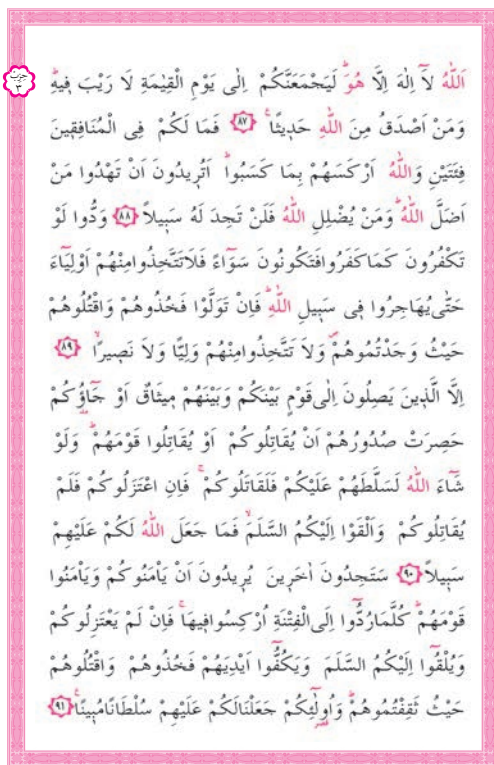 اَللّٰهُ لَٓا اِلٰهَ اِلَّا هُوَۜ لَيَجْمَعَنَّكُمْ اِلٰى يَوْمِ الْقِيٰمَةِ لَا رَيْبَ فٖيهِۜ
وَمَنْ اَصْدَقُ مِنَ اللّٰهِ حَدٖيثًا ۟ ﴿٨٧﴾ فَمَا لَكُمْ فِى الْمُنَافِقٖينَ
فِئَتَيْنِ وَاللّٰهُ اَرْكَسَهُمْ بِمَا كَسَبُواۜ اَتُرٖيدُونَ اَنْ تَهْدُوا مَنْ
اَضَلَّ اللّٰهُۜ وَمَنْ يُضْلِلِ اللّٰهُ فَلَنْ تَجِدَ لَهُ سَبٖيلاً ﴿٨٨﴾ وَدُّوا لَوْ
تَكْفُرُونَ كَمَا كَفَرُوا فَتَكُونُونَ سَوَٓاءً فَلَا تَتَّخِذُوا مِنْهُمْ اَوْلِيَٓاءَ
حَتّٰى يُهَاجِرُوا فٖى سَبٖيلِ اللّٰهِۜ فَاِنْ تَوَلَّوْا فَخُذُوهُمْ وَاقْتُلُوهُمْ
حَيْثُ وَجَدْتُمُوهُمْۖ وَلَا تَتَّخِذُوا مِنْهُمْ وَلِيًّا وَلَا نَصٖيرًاۙ ﴿٨٩﴾
اِلَّا الَّذٖينَ يَصِلُونَ اِلٰى قَوْمٍ بَيْنَكُمْ وَبَيْنَهُمْ مٖيثَاقٌ اَوْ جَٓاؤُكُمْ
حَصِرَتْ صُدُورُهُمْ اَنْ يُقَاتِلُوكُمْ اَوْ يُقَاتِلُوا قَوْمَهُمْۜ وَلَوْ
شَٓاءَ اللّٰهُ لَسَلَّطَهُمْ عَلَيْكُمْ فَلَقَاتَلُوكُمْۚ فَاِنِ اعْتَزَلُوكُمْ فَلَمْ
يُقَاتِلُوكُمْ وَاَلْقَوْا اِلَيْكُمُ السَّلَمَۙ فَمَا جَعَلَ اللّٰهُ لَكُمْ عَلَيْهِمْ
سَبٖيلاً ﴿٩٠﴾ سَتَجِدُونَ اٰخَرٖينَ يُرٖيدُونَ اَنْ يَأْمَنُوكُمْ وَيَأْمَنُوا
قَوْمَهُمْۜ كُلَّمَا رُدُّٓوا اِلَى الْفِتْنَةِ اُرْكِسُوا فٖيهَاۚ فَاِنْ لَمْ يَعْتَزِلُوكُمْ
وَيُلْقُٓوا اِلَيْكُمُ السَّلَمَ وَيَكُفُّٓوا اَيْدِيَهُمْ فَخُذُوهُمْ وَاقْتُلُوهُمْ
حَيْثُ ثَقِفْتُمُوهُمْۜ وَاُولٰٓئِكُمْ جَعَلْنَا لَكُمْ عَلَيْهِمْ سُلْطَانًا مُبٖينًا ۟ ﴿٩١﴾